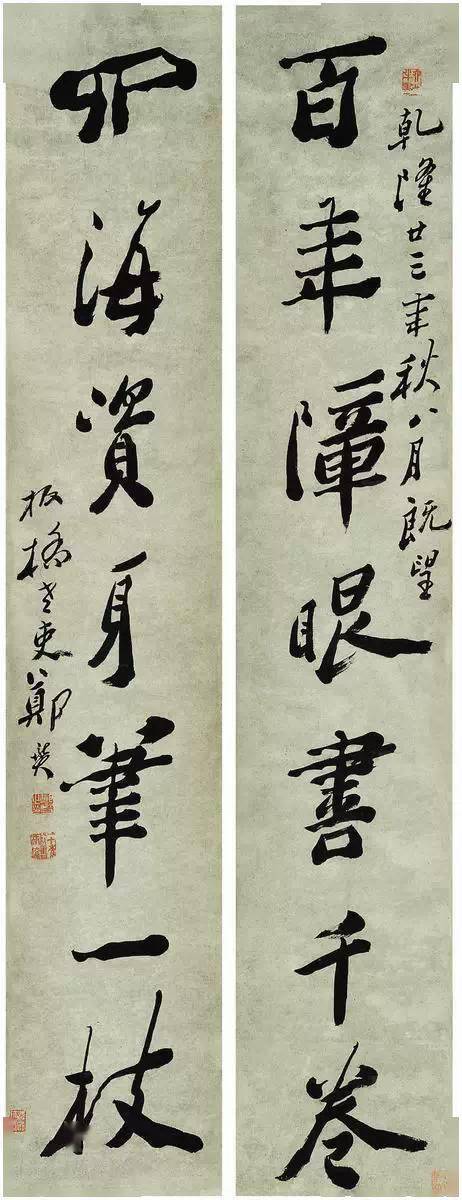 乾隆廿三年秋八月既望
百年障眼書千卷
四海資身筆一枝
板橋老吏鄭燮